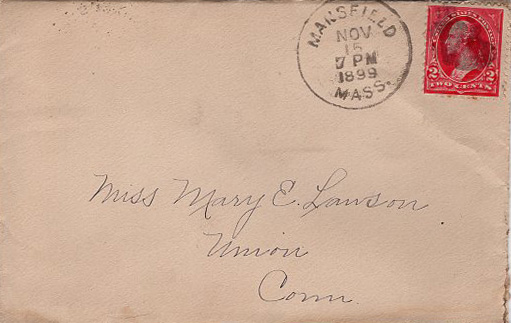 MANSFIELD
NOV
15
7 PM
1899
MASS.
2 2
TWO CENTS
Miss Mary E. Lawson
Union
Conn.